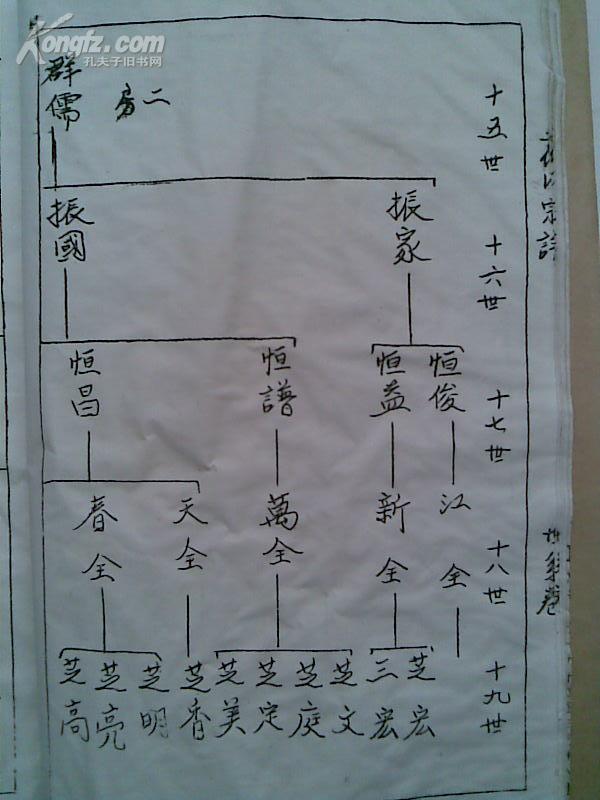 Kongfz.com
孔夫子旧书网
二房
十五世
群儒
十六世
振家
振國
十七世
恒俊
恒益
恒譜
恒昌
十八世
江全
新全
萬全
天全
春全
十九世
芝宏
三宏
芝文
芝庭
芝定
芝美
芝香
芝明
芝亮
芝高